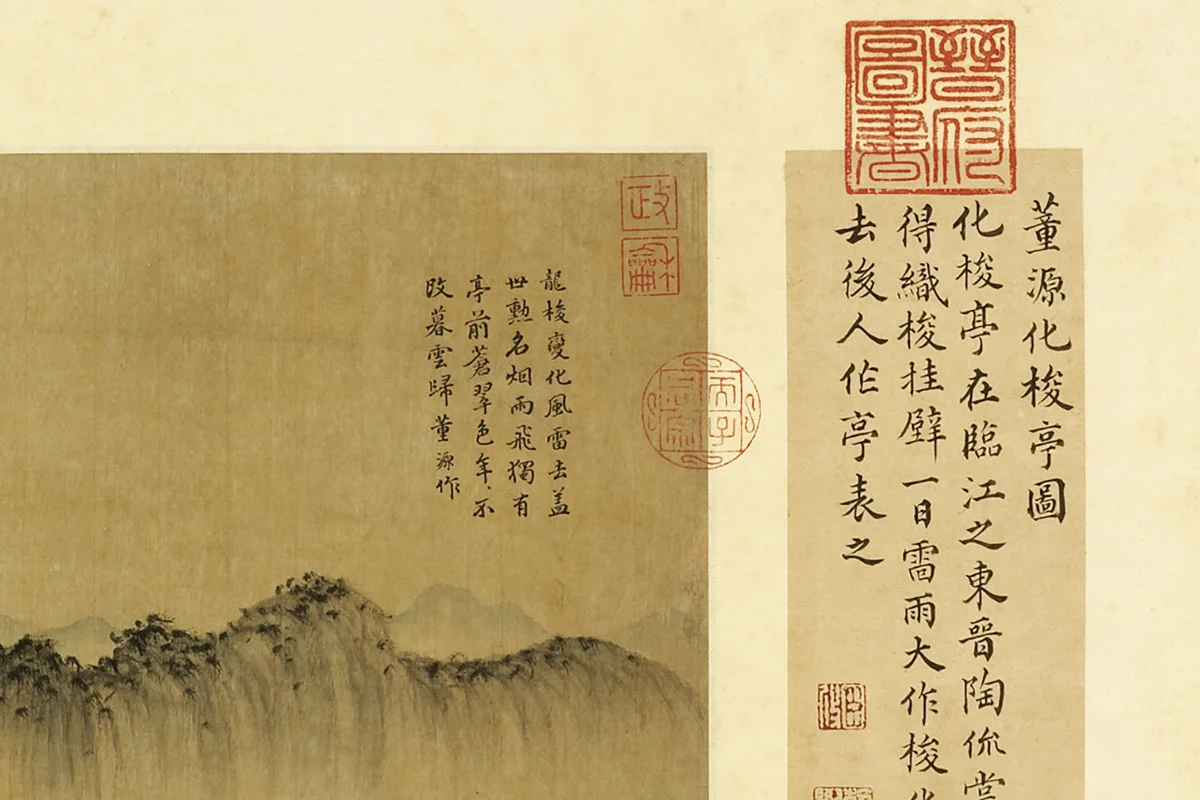 董源化梭亭圖
化梭亭在臨江之東晉陶侃嘗
得織梭挂壁一日雷雨大作梭化
去後人作亭表之
晉府圖書
政龢
龍梭變化風雷去蓋
世勲名烟雨飛獨有
亭前蒼翠色年〻不
改暮雲歸董源作